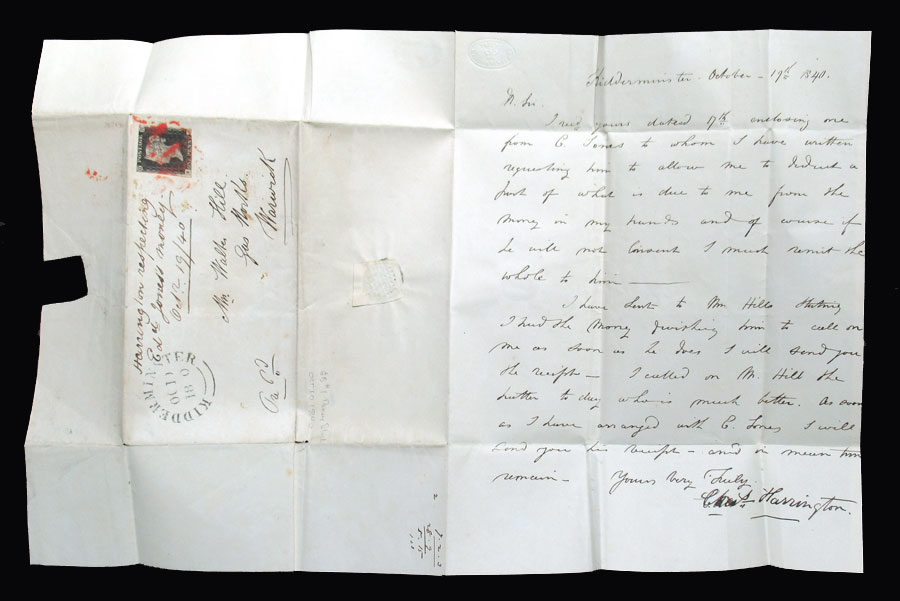 Harrington respecting
Ed & C Jones's money
Oct 19/40
Mr Walter Hill
Gas Works
Warwick
Paid
KIDDERMINSTER
OC 19
18 0
Kidderminster October 19th 1840.
Sir
I recd yours dated 17th enclosing one
from C. Jones to whom I have written
requesting him to allow me to deduct a
part of what is due to me from the
money in my hands and of course if
he will not consent I must remit the
whole to him
I have sent to Mr Hills
I had the money wishing him to call on
me as soon as he does I will send you
the receipt - I called on Mr Hill the
to day who is much better. As soon
as I have arranged with C. Jones I will
send you his receipt - and in mean time
remain - Yours very Truly
Chas Harrington.